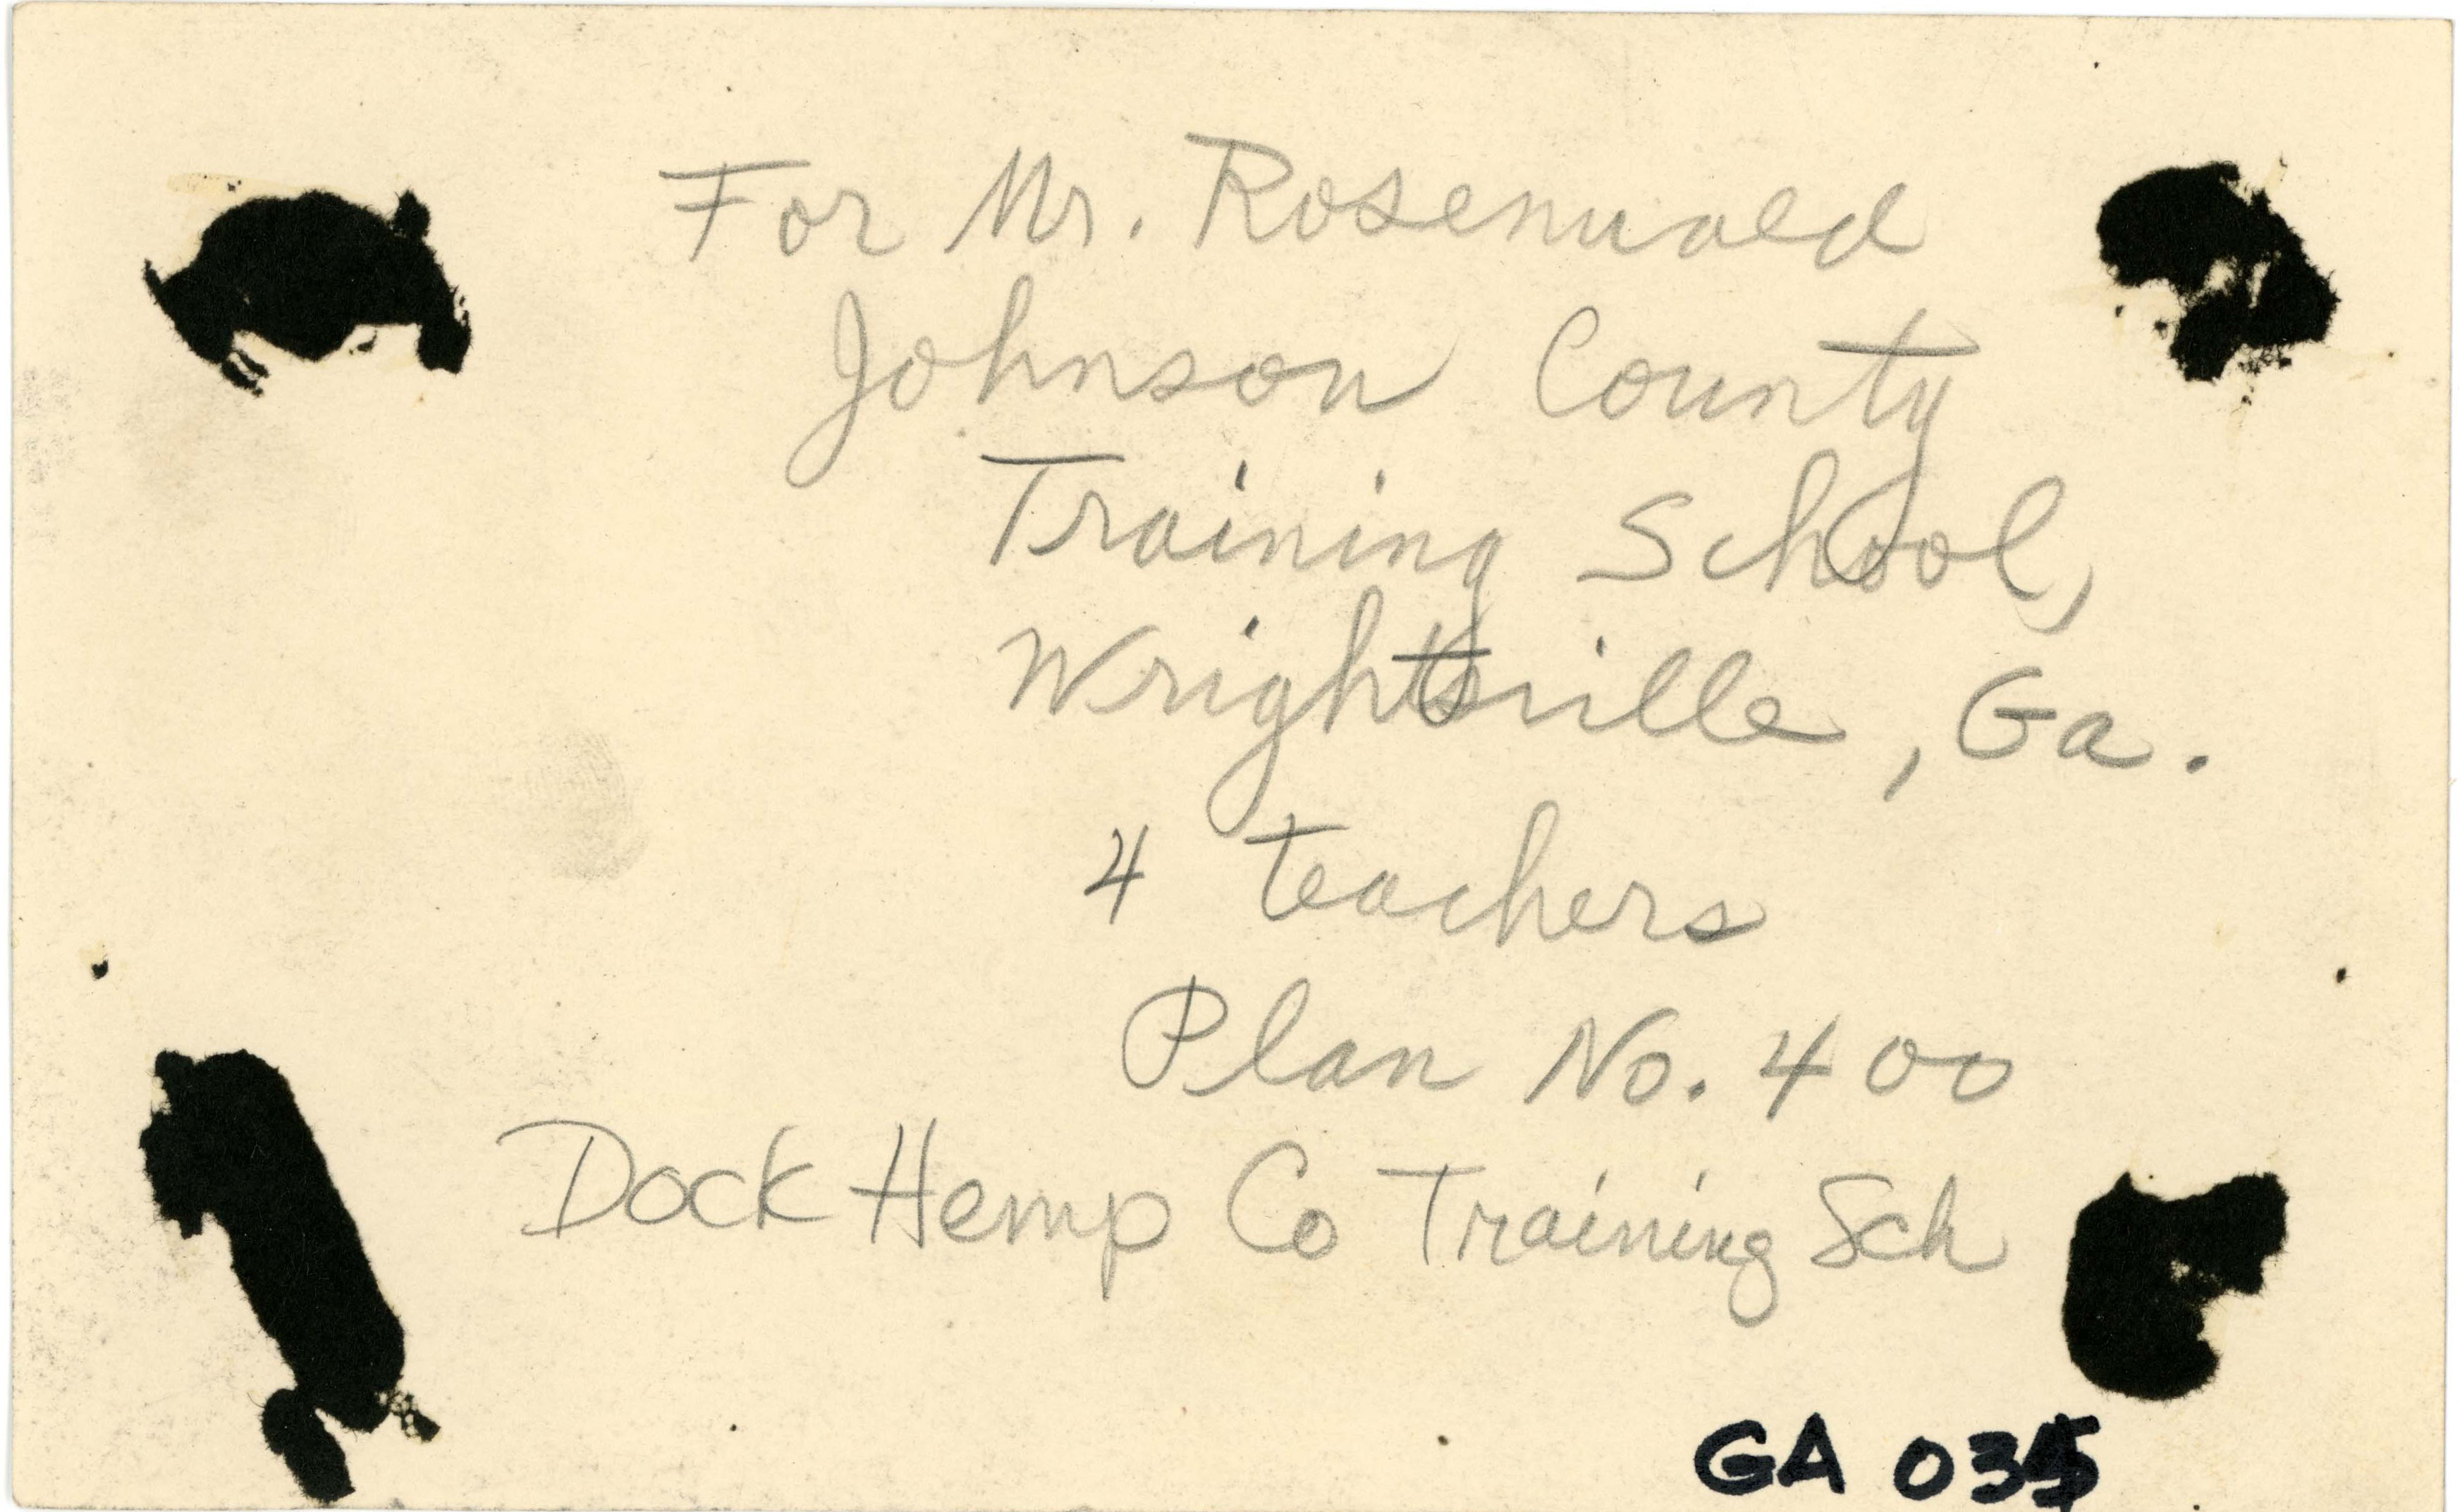 For Mr. Rosenwald
Johnson County
Training School,
Wrightsville, Ga.
4 teachers
Plan No. 400
Dock Hemp Co Training Sch
GA 035